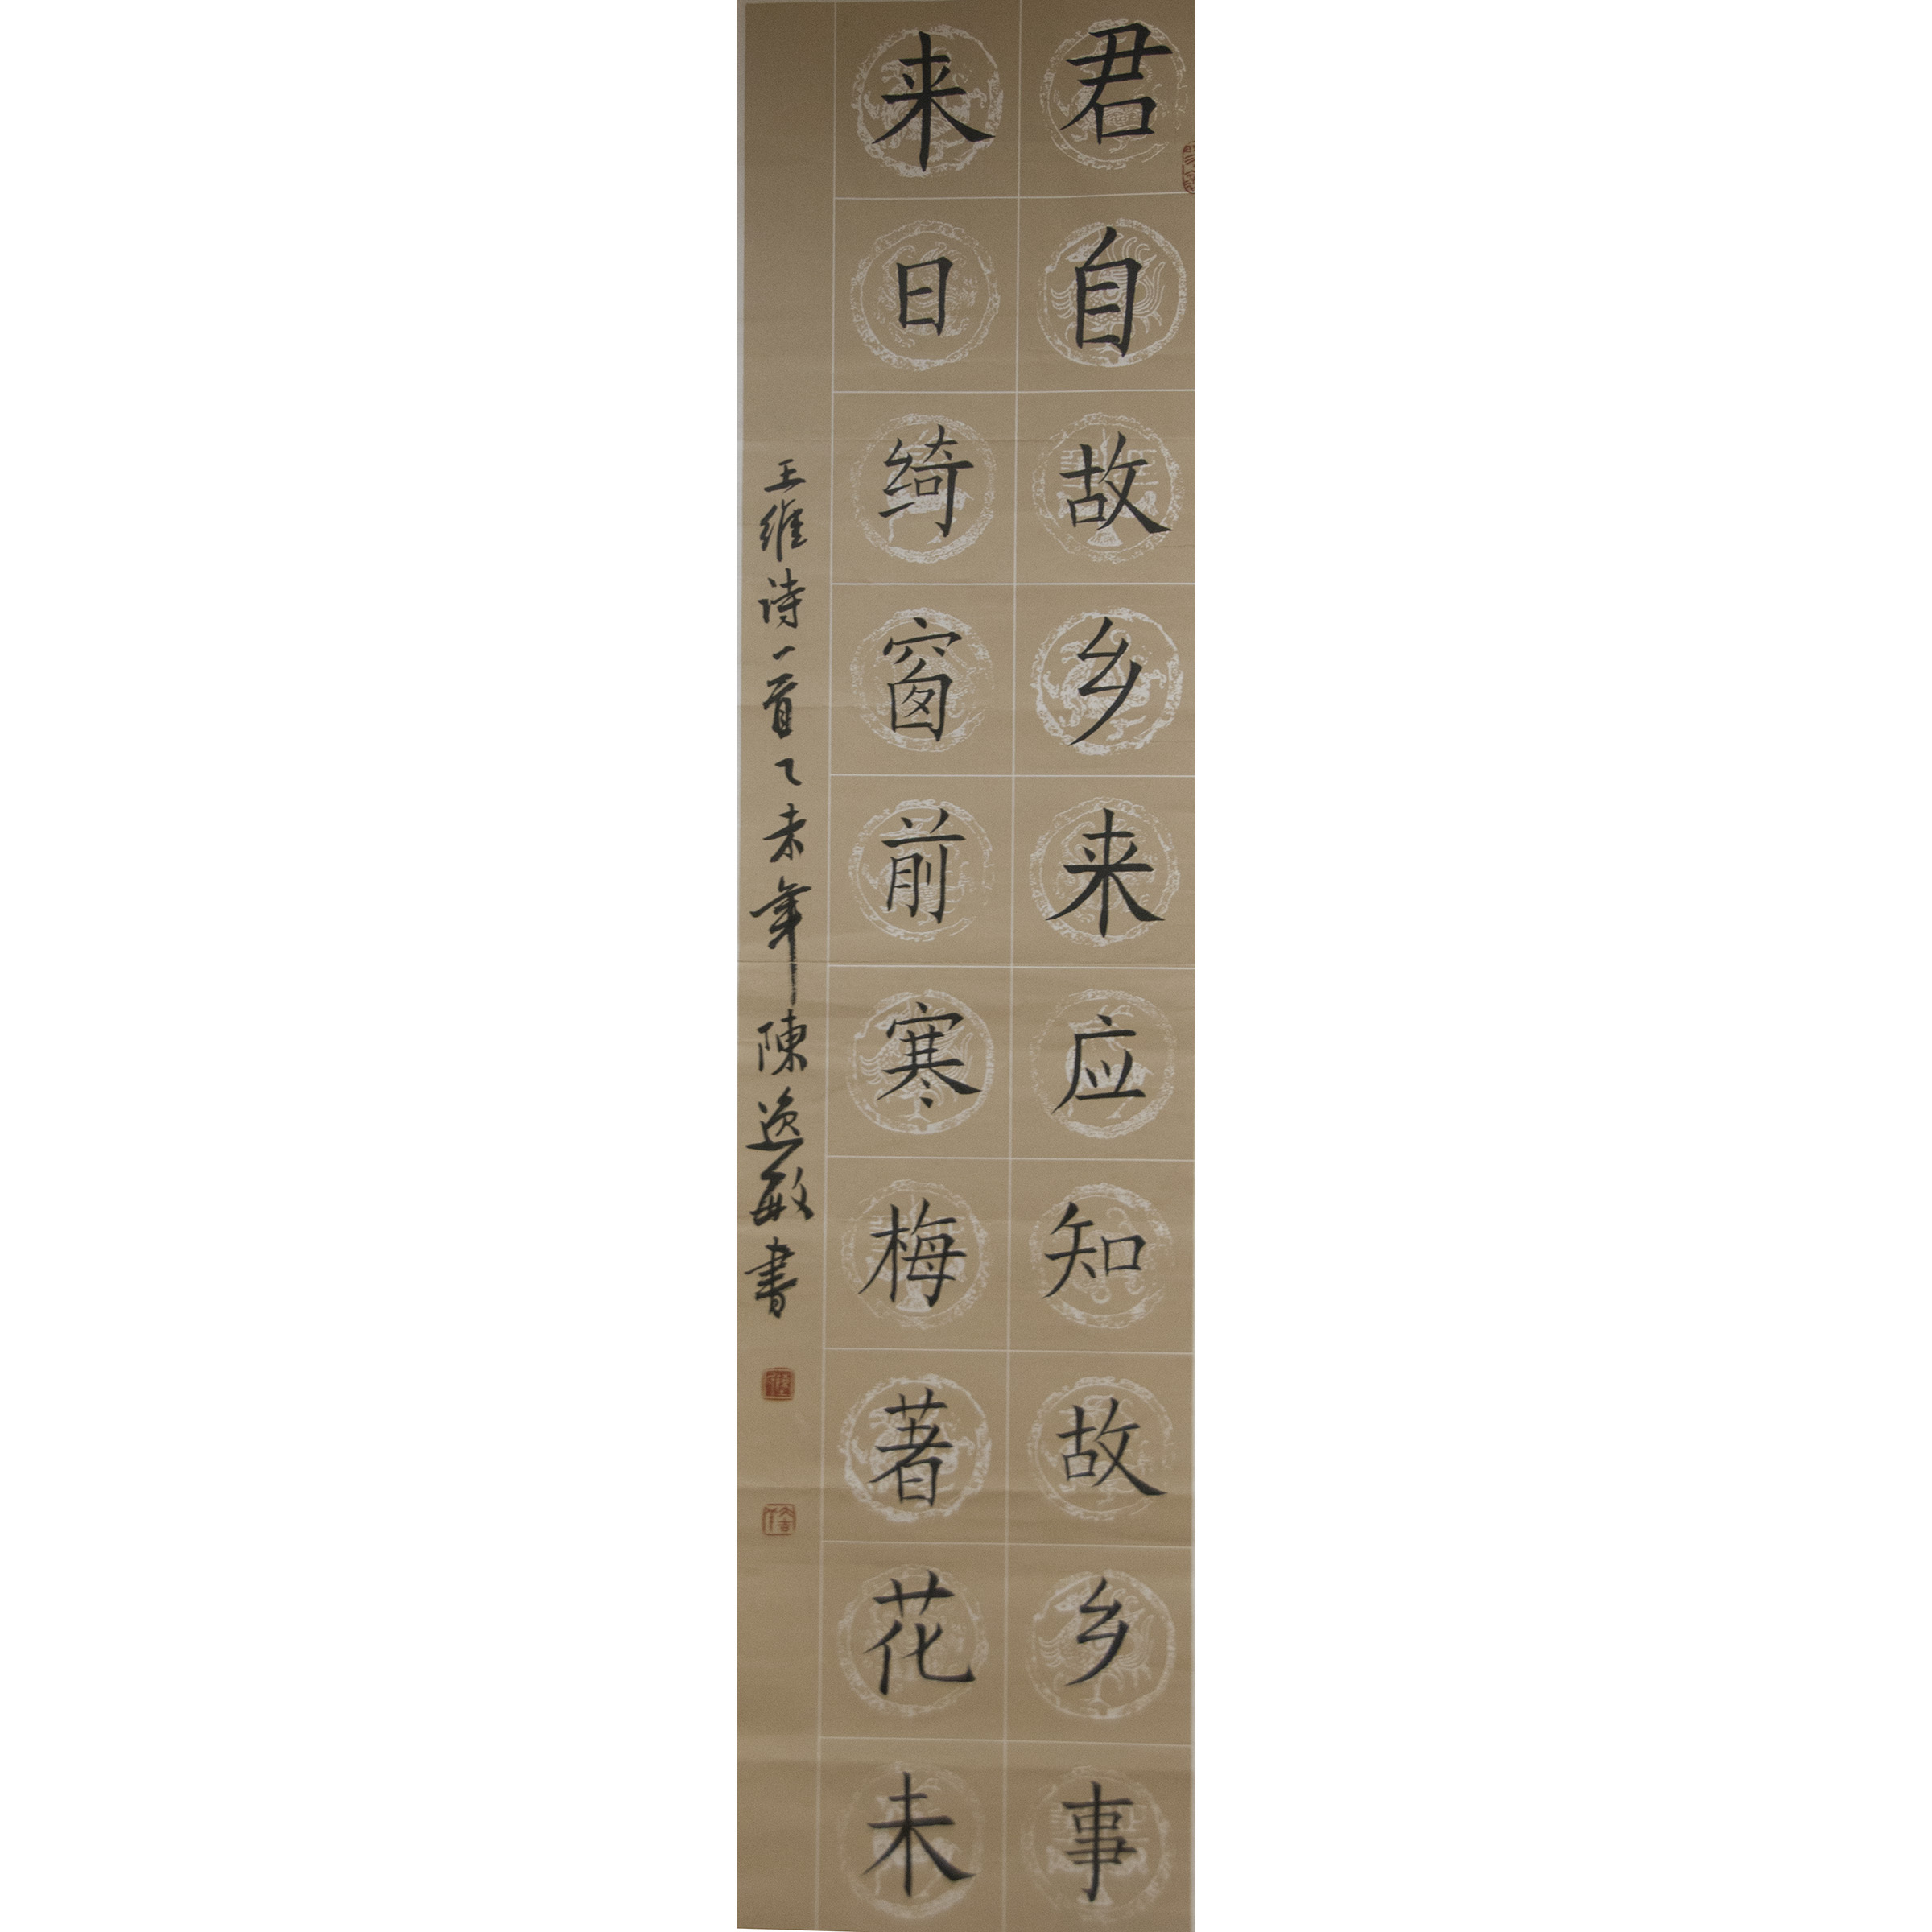 君自故乡来应知故乡事
来日绮窗前寒梅著花未
王维诗一首乙未年陳逸敏書